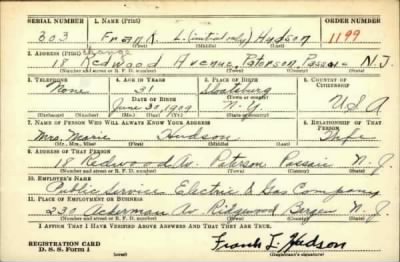 SERIAL NUMBER 1. NAME (Print) ORDER NUMBER
303 Frank L. (initial only) Hudson 1199
(First) (Middle) (Last)
2. ADDRESS (Print) change
18 Redwood Avenue, Paterson, Passaic N.J.
(Number and street or R. F. D. number) (Town) (County) (State)
3. TELEPHONE 4. AGE IN YEARS 5. PLACE OF BIRTH 6. COUNTRY OF CITIZENSHIP
None 31 Sloatsburg
DATE OF BIRTH (Town or county)
June 30, 1909 N.Y. USA
(Exchange) (No.) (Mo.) (Day) (Yr.) (State or country)
7. NAME OF PERSON WHO WILL ALWAYS KNOW YOUR ADDRESS 8. RELATIONSHIP OF THAT PERSON
Mrs. Marie Hudson Wife
(Mr., Mrs., Miss) (First) (Middle) (Last)
9. ADDRESS OF THAT PERSON
18 Redwood Av. Paterson Passaic N. J.
(Number and street or R. F. D. number) (Town) (County) (State)
10. EMPLOYER'S NAME
Public Service Electric & Gas Company
11. PLACE OF EMPLOYMENT OR BUSINESS
230 Ackerman Av Ridgewood Bergen N. J.
(Number and street or R. F. D. number) (Town) (County) (State)
I AFFIRM THAT I HAVE VERIFIED ABOVE ANSWERS AND THAT THEY ARE TRUE.
REGISTRATION CARD
D. S. S. Form 1 (over) Frank L. Hudson
(Registrant's signature)